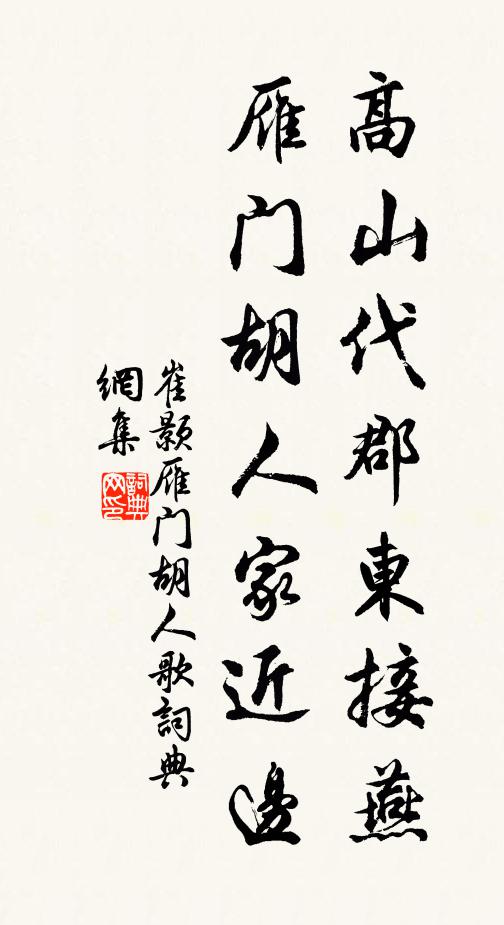 高山代郡東接燕
雁门胡人家近邊
崔颢雁门胡人歌詞典
網集
詞典网印